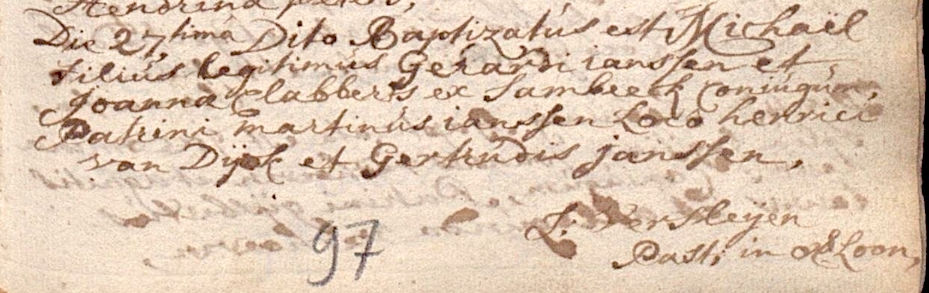 Hendrina peters,
Die 27tima Dito Baptizatus est Michaël
filius legitimus Gerardi ianssen et
Joanna Clabbers ex Sambeeck coniugum,
Patrini martinus ianssen Loco henrici
van Dijck et Gertrudis janssen,
J. Versleijen
Past; in Loon,
97